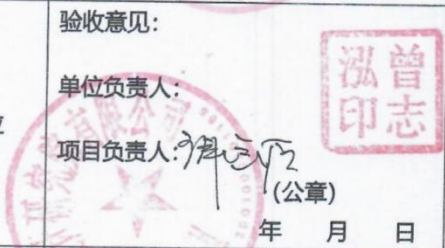 验收意见：
单位负责人：
项目负责人：
（公章）
年 月 日
曾志泓印
有限公司